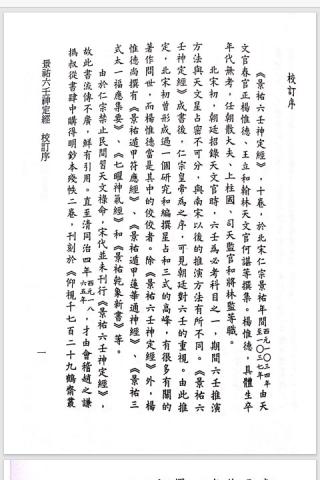 校訂序
《景祐六壬神定經》，十卷，於北宋仁宗景祐年間西元一〇三四年至一〇三七年由天
文官春官正楊惟德、王立和翰林天文官何諶等撰集。楊惟德，具體生卒
年代無考，任朝散大夫、上柱國、司天監官和將林監等職。
北宋初，朝廷招錄天文官時，六壬爲必考科目之一，期間六壬推演
方法與天文星占密不可分，與南宋以後的推演方法有所不同。《景祐六
壬神定經》成書後，仁宗皇帝爲之序，可見朝廷對六壬的重視。由此推
定，北宋初曾形成過一個研究和編撰星占和三式的高峰，有很多有關的
著作問世，而楊惟德當是其中的佼佼者。除《景祐六壬神定經》外，楊
惟德尚撰有《景祐遁甲符應經》、《景祐遁甲蓮華通神經》、《景祐三
式太一福應集要》、《七曜神氣經》和《景祐乾象新書》等。
由於仁宗禁止民間習天文祿命，宋代並未刊行《景祐六壬神定經》，
故此書流傳不廣，鮮有引用。直至清同治四年西元一八六五年，才由會稽趙之謙
撝叔從書肆中購得明鈔本殘帙二卷，刊刻於《仰視千七百二十九鶴齋叢
景祐六壬神定經 校訂序
一